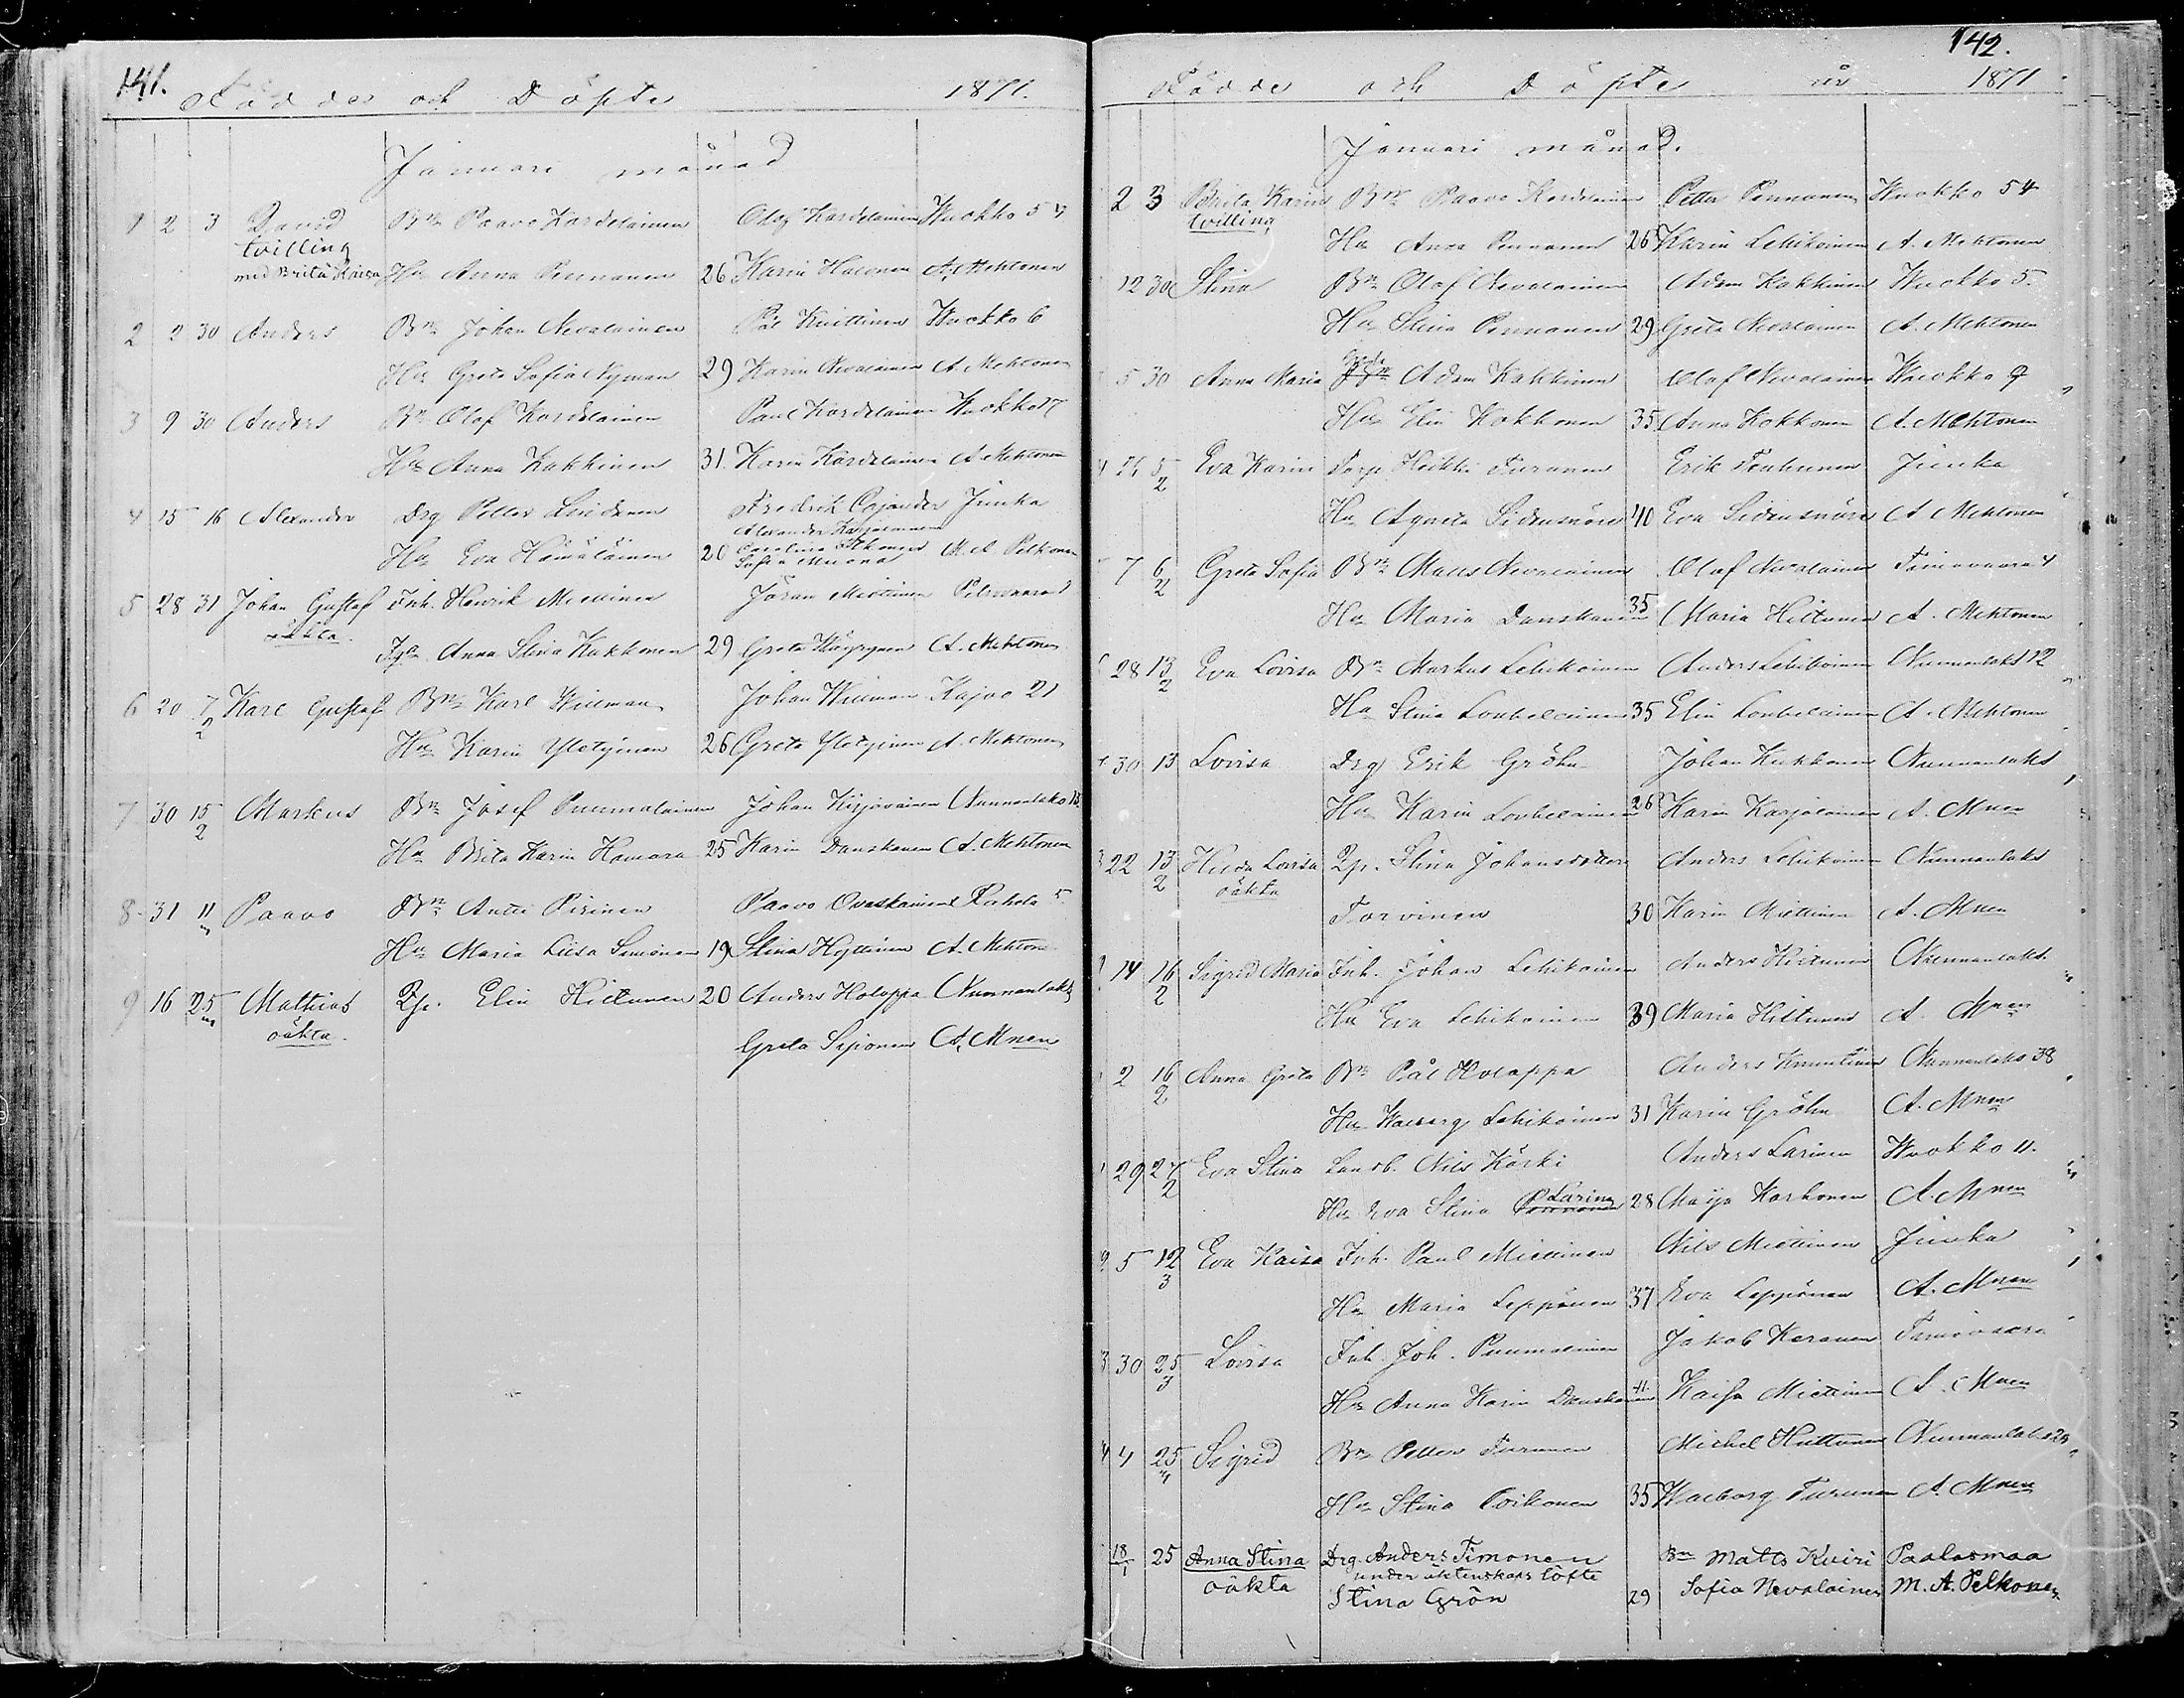 141.
Födde och Döpte 1871.
Januari månad
1 2 3 David Bn Paavo Kärdelainen Olof Kärdelainen Wuokko 54
tvilling
med Brita Karin Hu Anna Pennanen 26 Karin Halonen A. Mehtonen
2 2 30 Anders Bn Johan Nevalainen Pål Knittinen Wuokko 6
Hu Greta Sofia Nyman 29 Karin Nevalainen A. Mehtonen
3 9 30 Anders Bn Olof Kärdelainen Paul Kärdelainen Wuokko 17
Hu Anna Kakkinen 31. Karin Kärdelainen A. Mehtonen
4 15 16 Alexander Drg Petter Fredrik Cajander Juuka
Alexander Karjalainen
Hu Eva Hämäläinen 20 Carolina M. A. Pelkonen
Sofia
5 28 31 Johan Gustaf Inh. Henrik Miettinen Göran Miettinen
oäkta. Anna Stina Kakkonen 29 Greta Häyrynen A. Mehtonen
6 20 7/2 Karl Gustaf Bn Karl Willman Johan Willman Kajoo 21
Hu Karin Yletyinen 26 Greta Yletyinen A. Mehtonen
7 30 15/2 Markus Bn Josef Puumalainen Johan Kirjavainen Nunnanlaks 18
Hu Brita Karin 25 Karin Danskanen A. Mehtonen
8 31 11 Paavo Bn Antti Piirinen Paavo Ovaskainen Rahola 5
Hu Maria Liisa Simonen 19 Stina A. Mehtonen
9 16 25 Mathias Pig. Elin Hiltunen 20 Anders Holoppa Nunnanlaks
oäkta. Greta Siponen A. Mnen
142.
Födde och Döpte år 1871
Januari månad.
2 3 Brita Karin Bn Paavo Kärdelainen Petter Pennanen Wuokko 54
tvilling
Hu Anna Pennanen 26 Karin Lehikoinen A. Mehtonen
12 30 Stina Bn Olof Nevalainen Adam Kakkinen Wuokko 5.
Hu Stina Pennanen 29 Greta Nevalainen A. Mehtonen
5 30 Anna Maria Adam Kakkinen Olof Nevalainen Wuokko 9
Hu Elin Kokkonen 35 Anna Kokkonen A. Mehtonen
5/2 Eva Karin Torp Heikki Turunen Erik Juuka
Hu Agneta Sidensnöre 40 Eva Sidensnöre A. Mehtonen
7 6/2 Greta Sofia Bn Matts Nevalainen Olof Nevalainen Timovaara 4
Hu Maria Danskanen 35 Maria Hiltunen A. Mehtonen
28 13/2 Eva Lovisa Bn Markus Lehikoinen Anders Lehikoinen Nunnanlaks 12
Hu Stina Loukolainen 35 Elin Loukolainen A. Mehtonen
30 13 Lovisa Drg Erik Gröhn Johan Kukkonen Nunnanlaks
Hu Karin Loukolainen 26 Karin Karjalainen A. Mnen
22 13/2 Hilda Lovisa Pig. Stina Johansdotter Anders Lehikoinen Nunnanlaks
oäkta
Torvinen 30 Karin Miettinen A. Mnen
14 16/2 Sigrid Maria Inh. Johan Lehikoinen Anders Hiltunen Nunnanlaks.
Hu Eva Lehikoinen 39 Maria Hiltunen A. Mnen
2 16/2 Anna Greta Bn Pål Holoppa Anders Nunnanlaks 38
Hu Walborg Lehikoinen 31 Karin Gröhn A. Mnen
29 27/2 Eva Stina Landb. Nils Kärki Anders Larinen Wuokko 11.
Hu Eva Stina Larinen 28 Maija Korhonen A. Mnen
5 12/3 Eva Kaisa Inh. Paul Miettinen Nils Miettinen Juuka
Hu Maria Leppänen 37 Eva Leppänen A. Mnen
30 25/3 Lovisa Inh. Joh. Puumalainen Jakob Keränen Timovaara
Hu Anna Karin Danskanen 41 Kaisa Miettinen A. Mnen
4 25/4 Sigrid Bn Petter Turunen Michel Huttunen Nunnanlaks 25
Hu Stina Poikonen 35 Walborg Turunen A. Mnen
18/1 25 Anna Stina Drg. Anders Timonen Bn Matts Kviri Paalasmaa
under äktenskaps löfte
oäkta Stina Grön 29 Sofia Nevalainen M. A. Pelkonen